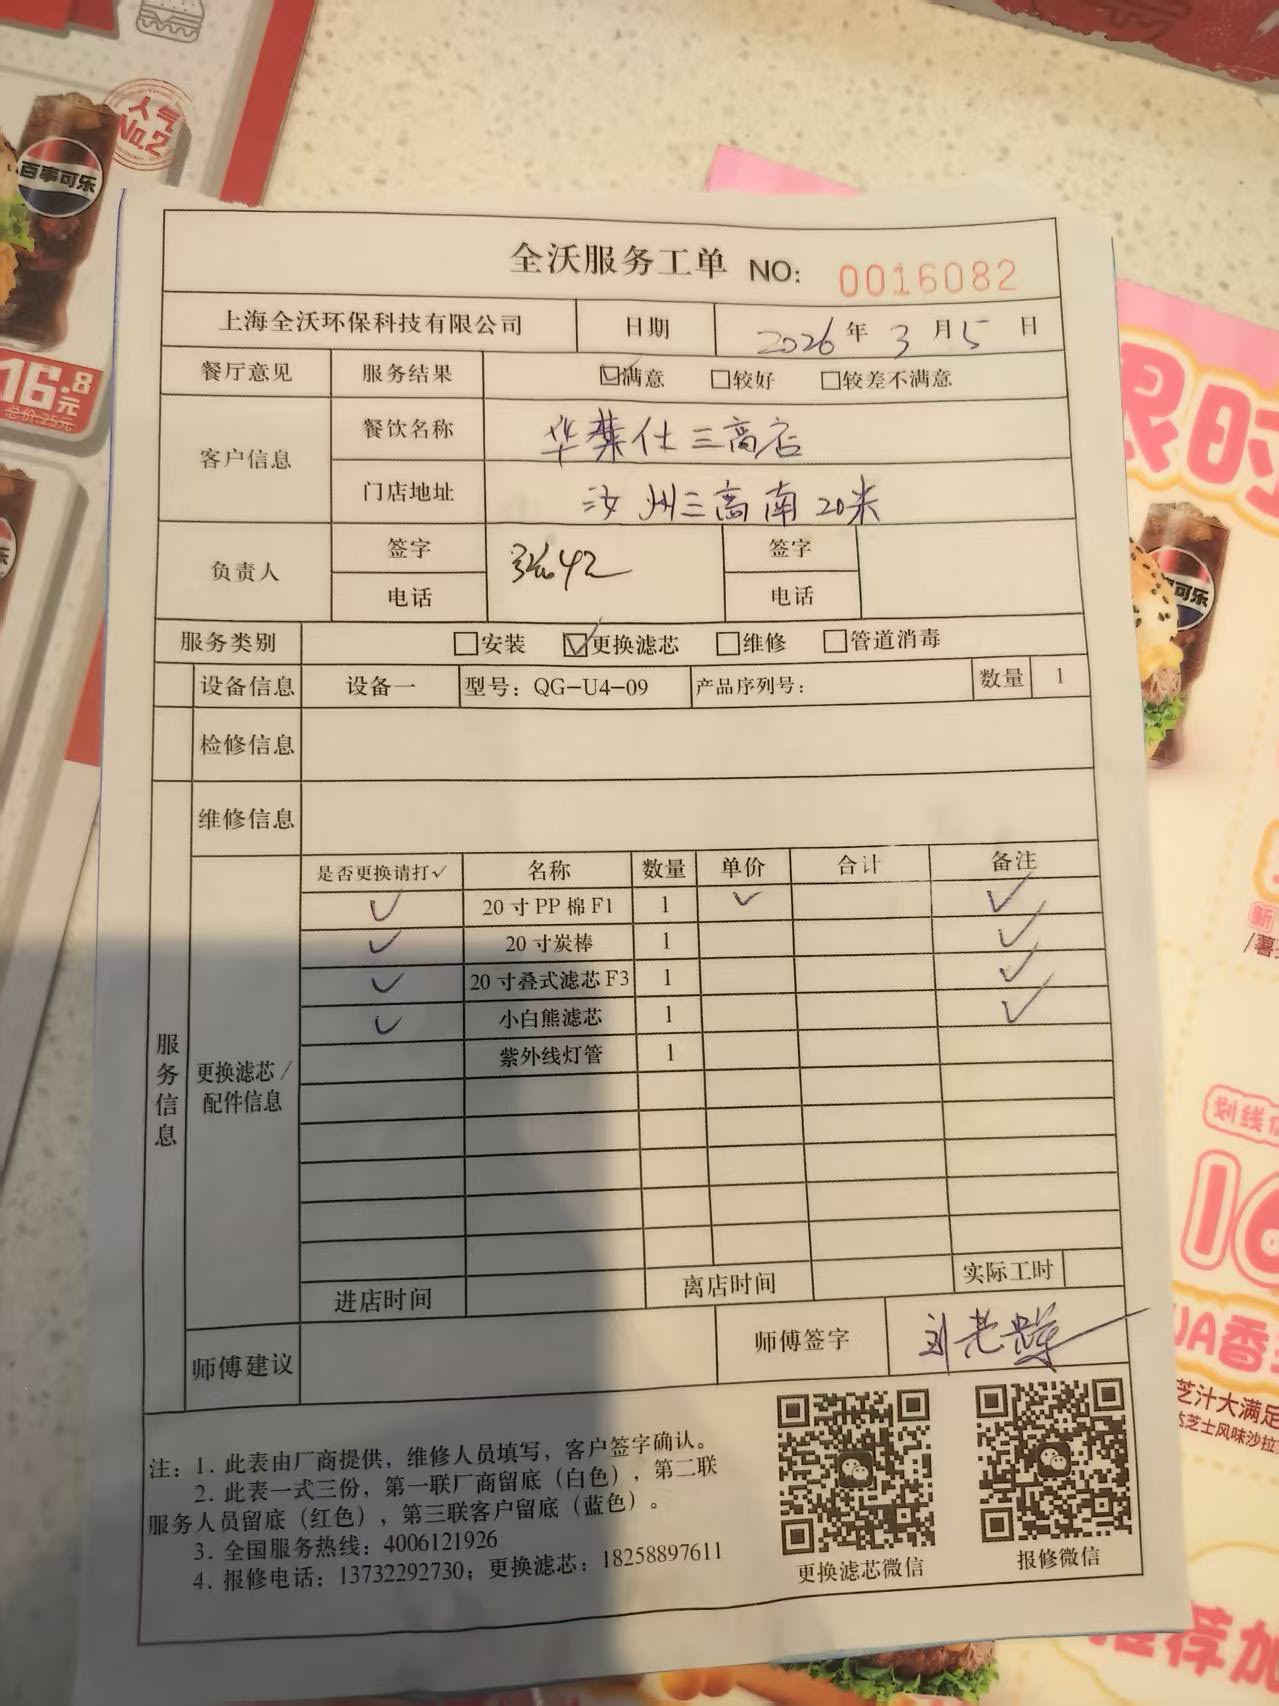 人气
No.2
百事可乐
16.8元
总价:25元
全沃服务工单 NO: 0016082
上海全沃环保科技有限公司 日期 2026年3月5日
餐厅意见 服务结果 ☑满意 □较好 □较差不满意
客户信息 餐饮名称 华莱仕三高店
门店地址 汝州三高南20米
负责人 签字 签字
电话 电话
服务类别 □安装 ☑更换滤芯 □维修 □管道消毒
设备信息 设备一 型号：QG-U4-09 产品序列号： 数量 1
检修信息
维修信息
服务信息
更换滤芯/配件信息
是否更换请打✓ 名称 数量 单价 合计 备注
✓ 20寸PP棉F1 1 ✓ ✓
✓ 20寸炭棒 1 ✓
✓ 20寸叠式滤芯F3 1 ✓
✓ 小白熊滤芯 1 ✓
紫外线灯管 1
进店时间 离店时间 实际工时
师傅建议 师傅签字
注：1. 此表由厂商提供，维修人员填写，客户签字确认。
2. 此表一式三份，第一联厂商留底（白色），第二联
服务人员留底（红色），第三联客户留底（蓝色）。
3. 全国服务热线：4006121926
4. 报修电话：13732292730；更换滤芯：18258897611
更换滤芯微信
报修微信
限时
可乐
新
划线
16
芝汁大满足
芝士风味沙拉
推荐加